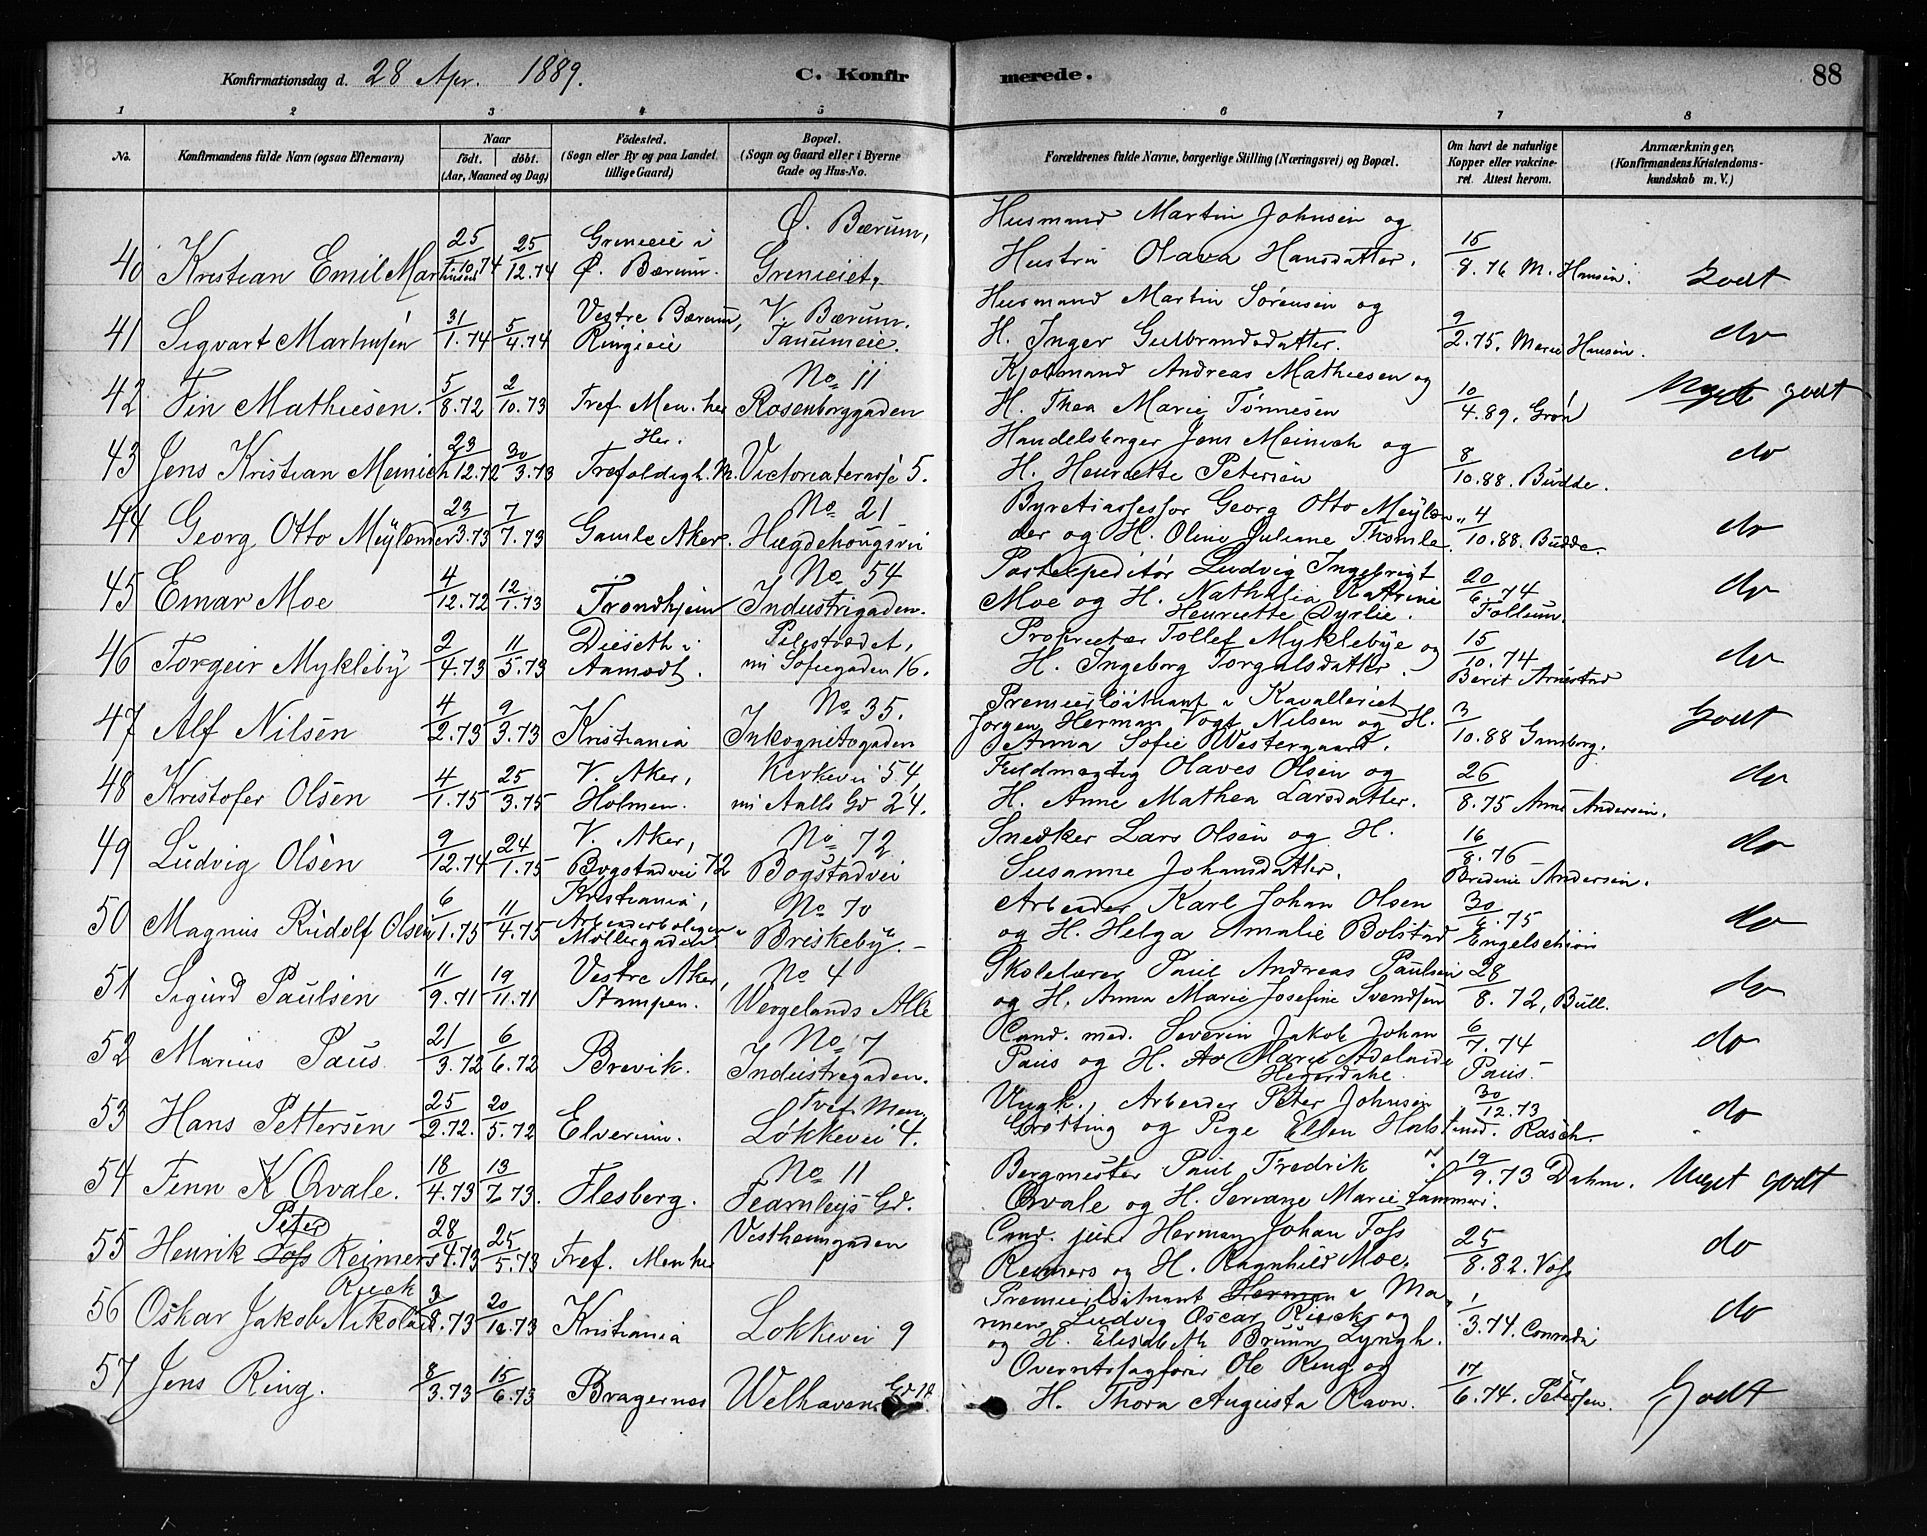 Konfirmationsdag d. 28 Apr. 1889. C. Konfirmerede. 88
1 2 3 4 5 6 7 8
No. Konfirmandens fulde Navn (ogsaa Efternavn) Naar født. døbt. (Aar, Maaned og Dag) Fødested. (Sogn eller By og paa Landet tillige Gaard) Bopæl. (Sogn og Gaard eller i Byerne Gade og Hus-No. Forældrenes fulde Navne, borgerlige Stilling (Næringsvei) og Bopæl. Om havt de naturlige Kopper eller vakcineret. Attest herom. Anmærkninger, (Konfirmandens Kristendomskundskab m. V.)
40 Kristian Emil Martinsen 25/10.74 25/12.74 Grinieie i Ø. Bærum. Ø. Bærum, Grinieiet, Husmand Martin Johnsen og Hustru Olava Hansdatter. 15/9.76 M. Hansen. Godt
41 Sigvart Marthinsen 31/1.74 5/4.74 Vestre Bærum, Ringieie V. Bærum. Tanumeie. Husmand Martin Sørensen og H. Inger Gulbrandsdatter. 9/2.75. Marie Hansen. do
42 Fin Mathiesen. 5/8.72 2/10.73 Tref Men. her No 11 Rosenborggaden Kjøbmand Andreas Mathiesen og H. Thea Marie Tønnesen 10/4.89. Grøn Meget godt
43 Jens Kristian Meinich 23/12.72 30/3.73 Her. Trefoldigh. M. Victoriaterasse 5. Handelsborger Jens Meinich og H. Henriette Petersen 8/10.88. Budde. do
44 Georg Otto Meÿlænder 23/3.73 7/7.73 Gamle Aker. No 21 Hægdehougsvei Byretsassessor Georg Otto Meÿlænder og H. Oline Juliane Thomle. 4/10.88. Budde. do
45 Einar Moe 4/12.72 12/1.73 Trondhjem No 54 Industrigaden. Postexpeditør Ludvig Ingebrigt Moe og H. Nathalia Katrine Henriette Dyrlie. 20/6.74 Follum. do
46 Torgeir Mykleby 2/4.73 11/5.73 Dieseth i Aamodt. Pilestrædet, nu Sofiegaden 16. Proprietær Tollef Myklebye og H. Ingeborg Torgalsdatter. 15/10.74 Berit Arnestad do
47 Alf Nilsen 4/2.73 9/3.73 Kristiania No 35. Inkognitogaden Premierløitnant v Kavalleriet Jørgen Herman Vogt Nilsen og H. Anna Sofie Westergaard. 3/10.88 Godt
48 Kristofer Olsen 4/1.75 25/3.75 V. Aker, Holmen. Kirkevei 54, nu Aalls Gd 24. Fuldmægtig Olaves Olsen og H. Anne Mathea Larsdatter. 26/8.75 Anne Andersen. do
49 Ludvig Olsen 9/12.74 24/1.75 V. Aker, Bogstadvei 72 No 72 Bogstadvei Snedker Lars Olsen og H. Susanne Johansdatter. 16/8.76 Andersen. do
50 Magnus Rudolf Olsen 6/1.75 11/4.75 Kristiania, Arbeiderboligen Møllergaden No 70 Briskeby. Arbeider Karl Johan Olsen og H. Helga Amalie Bolstad 30/6.75 do
51 Sigurd Paulsen 11/9.71 19/11.71 Vestre Aker, Stampen. No 4 Wergelands Allé Skolelærer Paul Andreas Paulsen og H. Anna Marie Josefine Svendsen 28/8.72, Bull. do
52 Marius Paus 21/3.72 6/6.72 Brevik. No 7 Industrigaden. Cand. med. Severin Jakob Johan Paus og H. Marie Adelaide 6/7.74 Paus. do
53 Hans Pettersen 25/2.72. 20/5.72 Elverum. Tref. Men, Løkkevei 4. Ungk., Arbeider Peter Johnsen Grøtting og Pige Ellen 30/12.73 Rasch. do
54 Finn K Qvale. 18/4.73 13/7.73. Flesberg. No 11 Fearnleys Gd. Bergmester Paul Fredrik Qvale og H. Seriane Marie Lammers. 19/9.73 Dahm. Meget godt
55 Henrik Peter Foss Reimers 28/4.73 25/5.73 Tref. Menhed Vestheimgaden Cand. jur. Herman Johan Foss Reimers og H. Ragnhild Moe. 25/8.82. Voss do
56 Oskar Jakob Nikolai Rieck 3/8.73 20/12.73 Kristiania Løkkevei 9 Premierløitnant Herman v Marinen, Ludvig Oscar Rieck og og H. Elisabeth Bruun Lyngh. 1/3.74. Conradi do
57 Jens Ring. 8/3.73 15/6.73 Bragernes Welhavens Gd 17 Overretssagfører Ole Ring og H. Thora Augusta Ravn. 17/6.74. Petersen. Godt